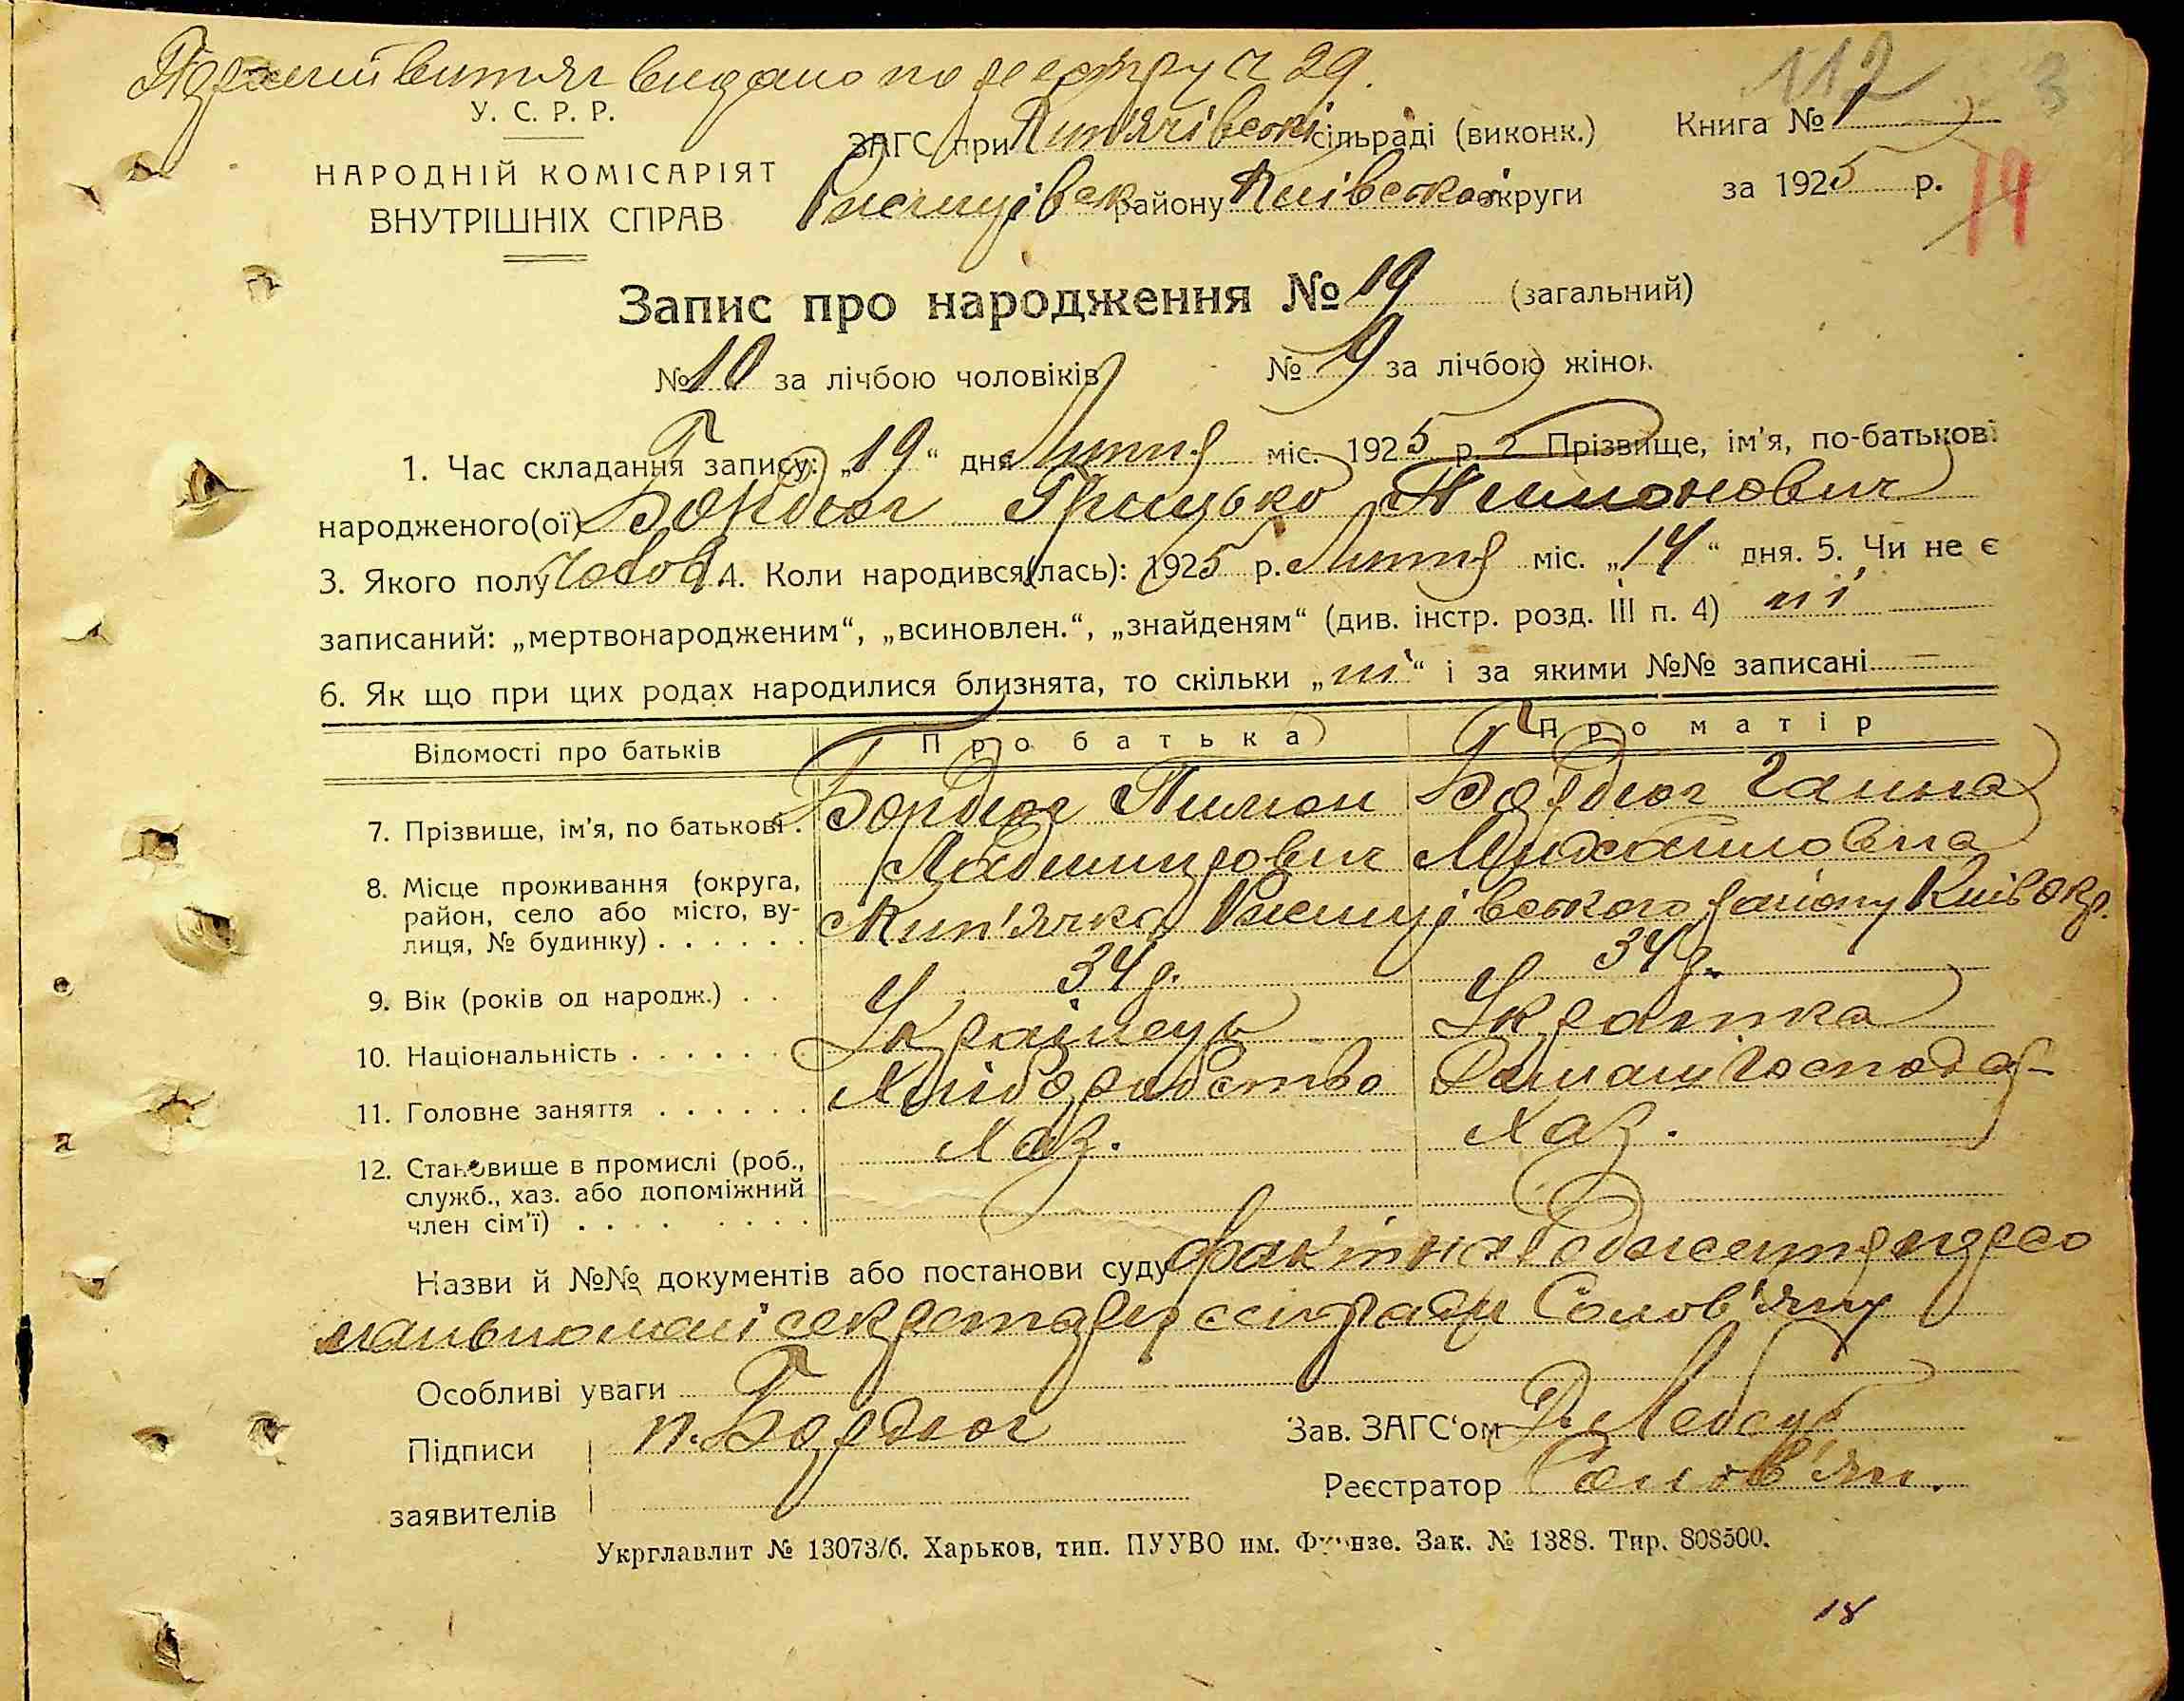 витяг видано по реєстру ч 29.
112 3
У. С. Р. Р.
НАРОДНІЙ КОМІСАРІЯТ
ВНУТРІШНІХ СПРАВ
ЗАГС при Кип'ячівські сільраді (виконк.)
Ржищівськ району Київської округи
Книга № 1
за 1925 р.
19
Запис про народження № 19 (загальний)
№ 10 за лічбою чоловіків № 9 за лічбою жінок
1. Час складання запису: „19“ дня Лютня міс. 1925 р. 2. Прізвище, ім'я, по-батькові
народженого(ої) Бордюг Грицько Пимонович
3. Якого полу Чолов. 4. Коли народився(лась): 1925 р. Лютня міс. „14“ дня. 5. Чи не є
записаний: „мертвонародженим“, „всиновлен.“, „знайденям“ (див. інстр. розд. III п. 4) ні
6. Як що при цих родах народилися близнята, то скільки „ні“ і за якими №№ записані —
Відомості про батьків Про батька Про матір
7. Прізвище, ім'я, по батькові. Бордюг Пимон Бордюг Ганна
Ладимирович Михайловна
8. Місце проживання (округа,
район, село або місто, ву-
лиця, № будинку) . . . . . . Кип'ячка Ржищівського району Київ окр.
9. Вік (років од народж.) . . 34 р. 34 р.
10. Національність . . . . . . . Українець Українка
11. Головне заняття . . . . . . Хліборобство Домаш господар
12. Становище в промислі (роб.,
служб., хаз. або допоміжний
член сім'ї) . . . . . . . . Хаз. Хаз.
Назви й №№ документів або постанови суду факт народження
секретарю сільради Солов'яну
Особливі уваги
Підписи П. Бордюг
заявителів
Зав. ЗАГС'ом
Реєстратор Солов'ян.
Укрглавлит № 13073/б. Харьков, тип. ПУУВО им. Фрунзе. Зак. № 1388. Тир. 808500.
18